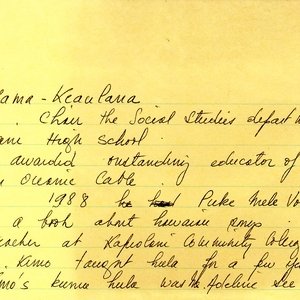 ama - Keaulana
. Chair the Social Studies depart
High School
awarded outstanding educator of
Oceanic Cable
1988 he had Puke Mele Vo
a book about hawaiian songs
at Kapiolani Community Colleg
Kimo taught hula for a few
mo's kumu hula was Adeline Lee